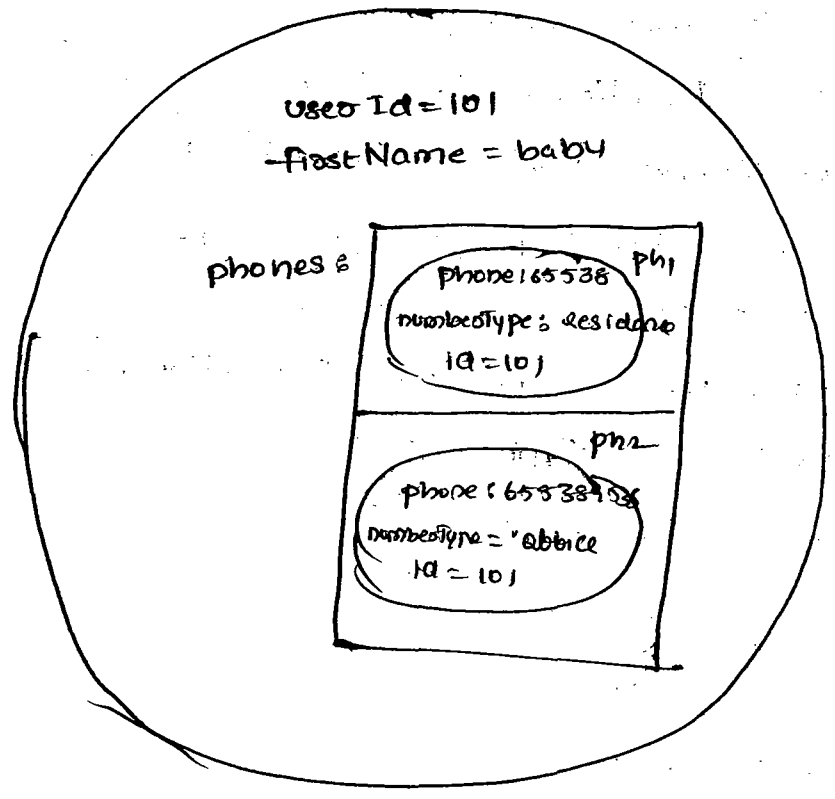 user Id = 101
firstName = baby
phones :
ph1
phone : 65538
numberType : Residence
id = 101
ph2
phone :
numberType = "office
id = 101